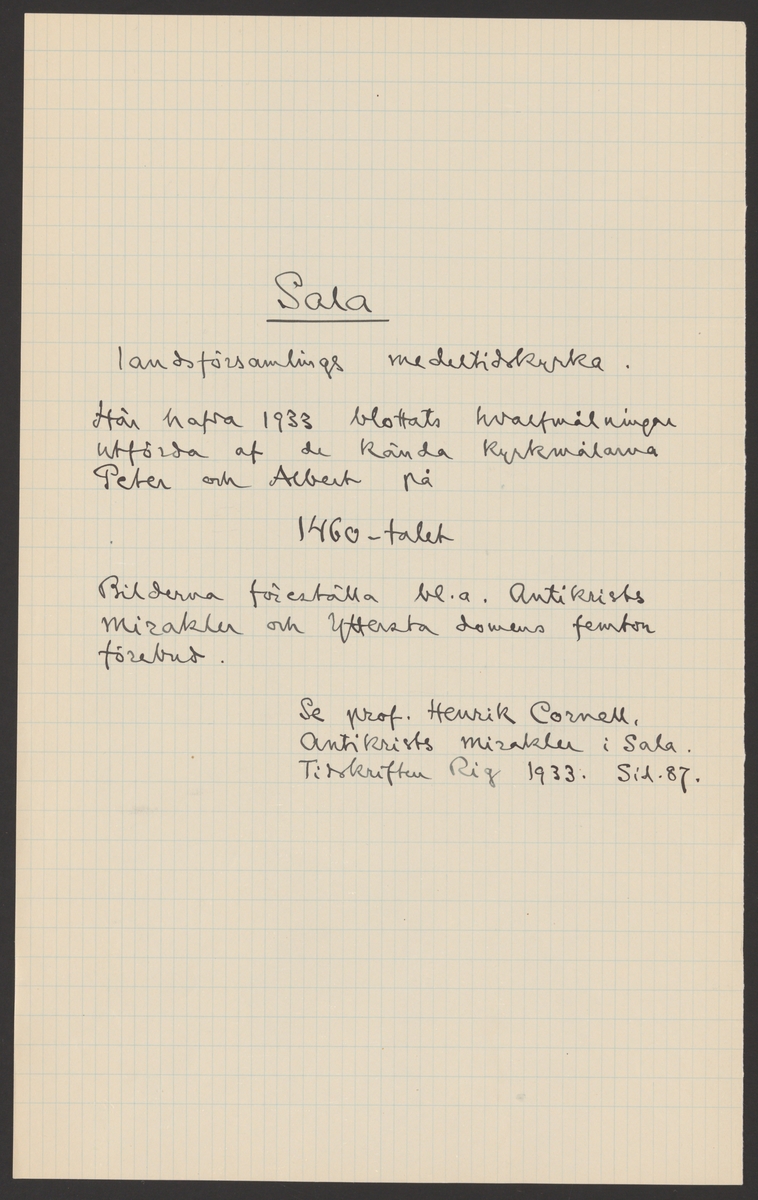 Sala
landsförsamlings medeltidskyrka.
Här hafva 1933 blottats hvalfmålningar
utförda af de kända kyrkmålarna
Peter och Albert på
1460-talet
Bilderna föreställa bl.a. Antikrists
mirakler och Ytterstа domens femton
förebud.
Se prof. Henrik Cornell,
Antikrists mirakler i Sala.
Tidskriften Rig 1933. Sid. 87.